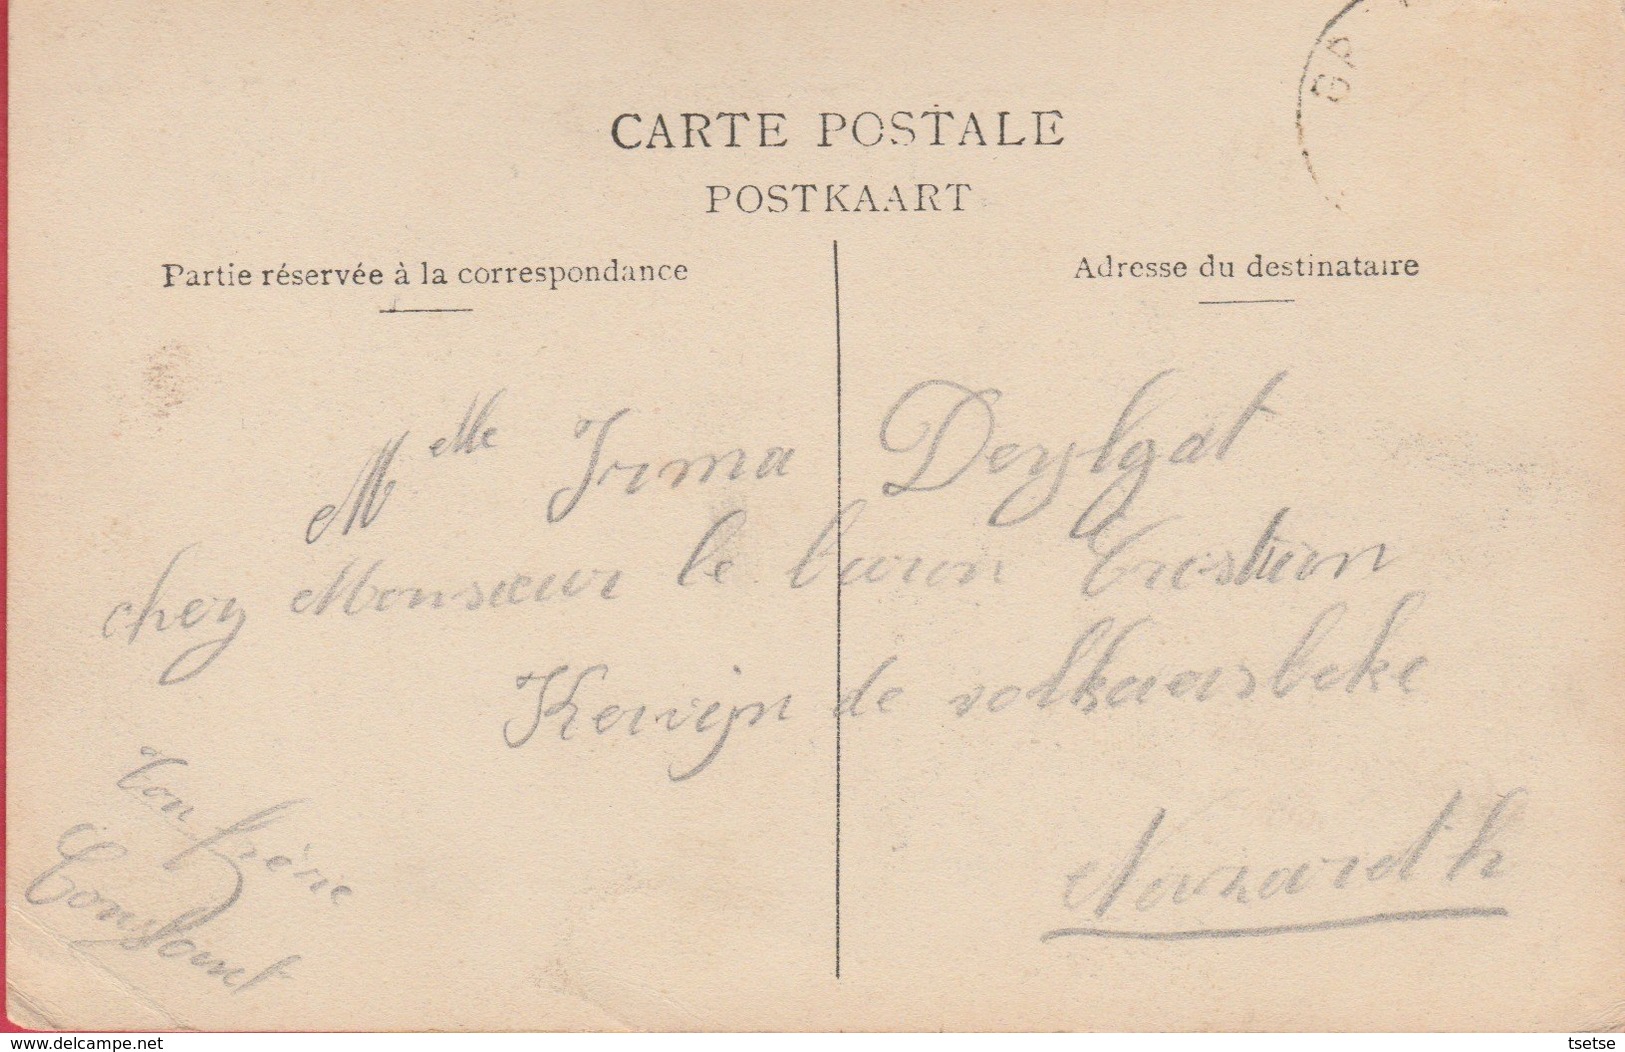 GA
CARTE POSTALE
POSTKAART
Partie réservée à la correspondance
Adresse du destinataire
Melle Irma Deylgat
chez Monsieur le baron Crestian
Kervijn de volkaersbeke
Nazareth
ton frère
Constant
www.delcampe.net
tsetse